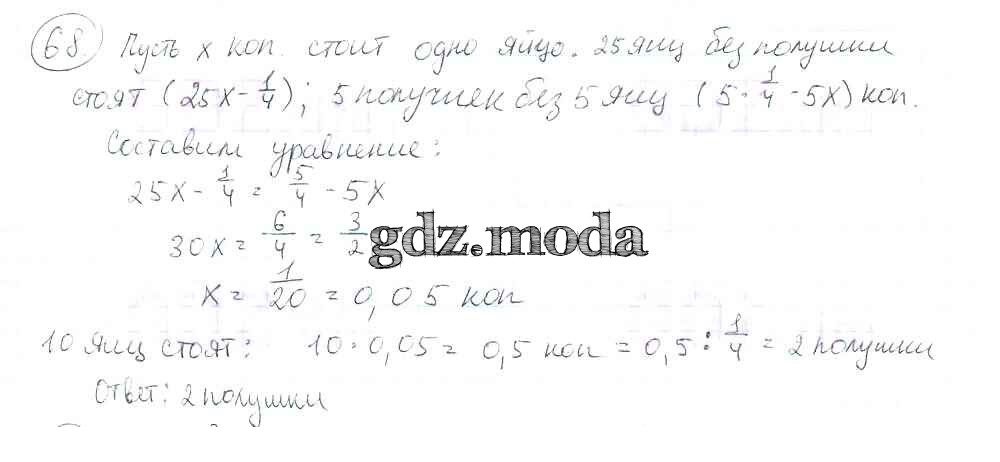 68. Пусть x коп. стоит одно яйцо. 25 яиц без полушки
стоят (25x - 1/4); 5 полушек без 5 яиц (5 · 1/4 - 5x) коп.
Составим уравнение:
25x - 1/4 = 5/4 - 5x
30x = 6/4 = 3/2
gdz.moda
x = 1/20 = 0,05 коп
10 яиц стоят: 10 · 0,05 = 0,5 коп = 0,5 : 1/4 = 2 полушки
Ответ: 2 полушки